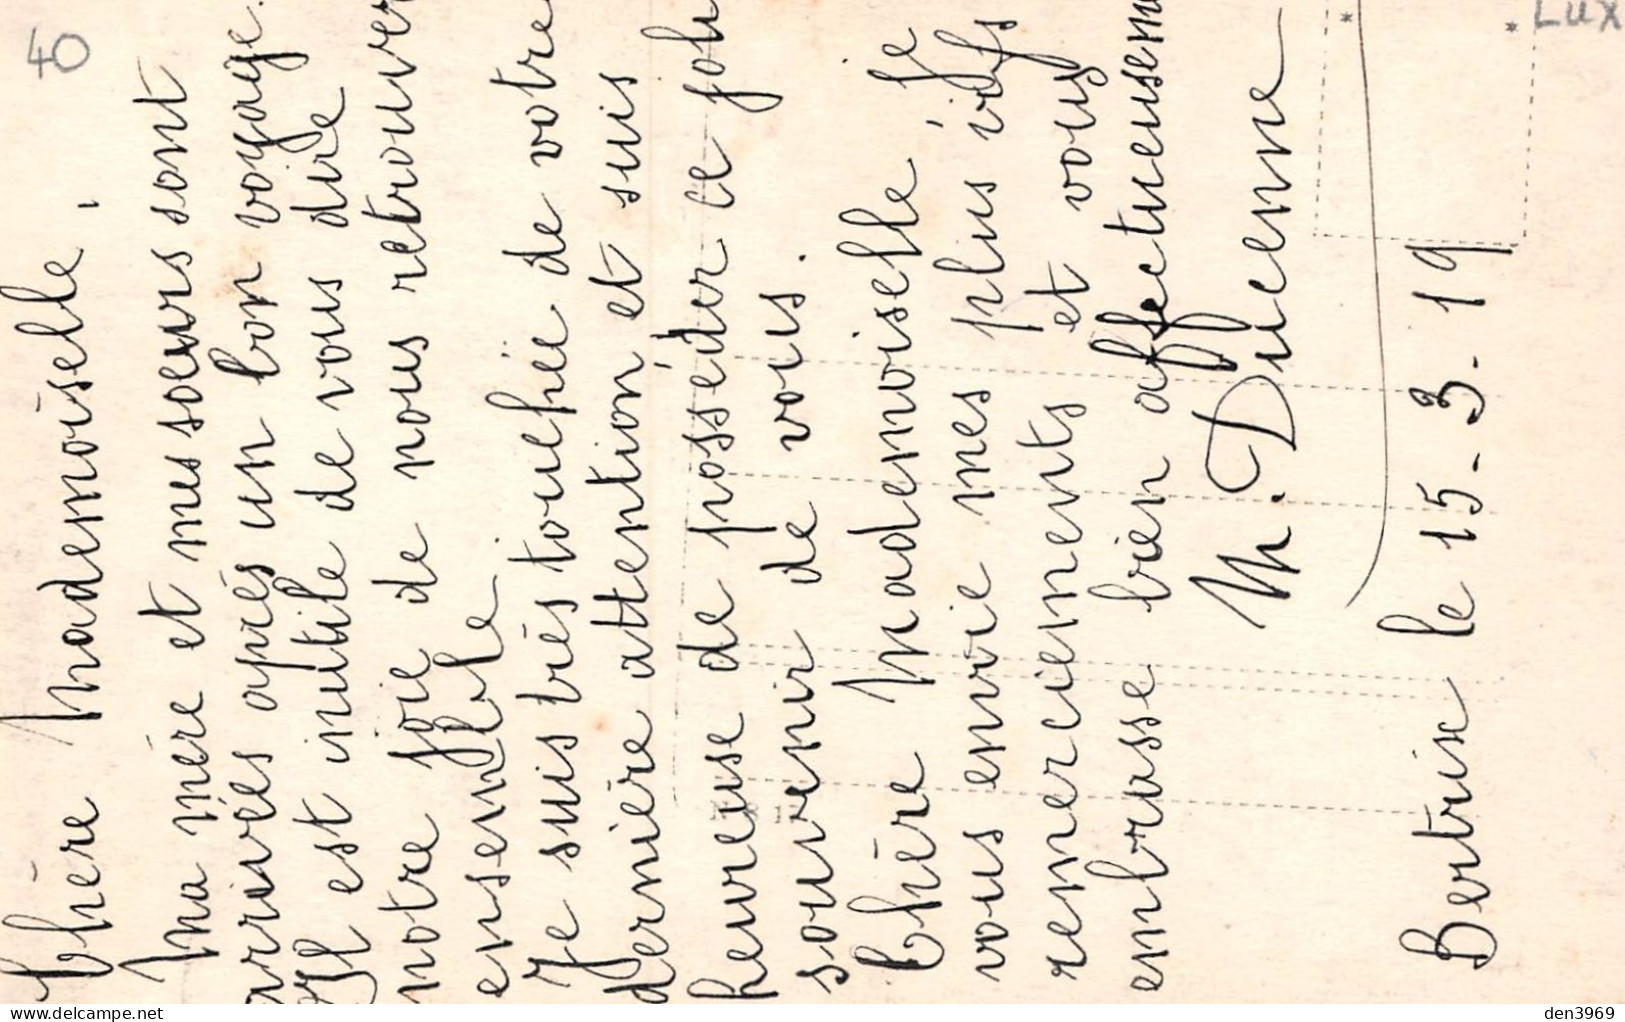 Chère Mademoiselle,
Ma mère et mes soeurs sont
arrivées après un bon voyage.
Il est inutile de vous dire
notre joie de nous retrouver
ensemble
Je suis très touchée de votre
dernière attention et suis
heureuse de posséder ce joli
souvenir de vous.
Chère Mademoiselle je
vous envoie mes plus vifs
remerciements et vous
embrasse bien affectueusement
M. Ducenne
Bertrix le 15-3-19
40
LUX
www.delcampe.net
den3969